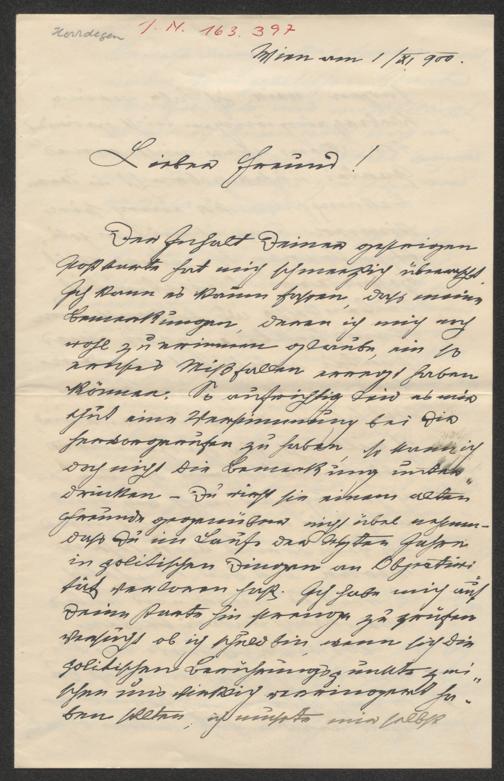 Herrdegen
J. N. 163.397
Wien am 1/XI 900.
Lieber Freund!
Der Inhalt Deiner gestrigen
Postkarte hat mich schmerzlich überrascht.
Ich kann es kaum fassen, dass meine
Bemerkungen, deren ich mich noch
wohl zu erinnern glaube, ein so
ernstes Mißfallen erregt haben
können. So aufrichtig leid es mir
thut eine Verstimmung bei Dir
hervorgerufen zu haben, so kann ich
doch nicht die Bemerkung unter-
drücken – Du wirst sie einem alten
Freunde gegenüber nicht übel nehmen –
dass Du im Laufe der letzten Jahre
in politischen Dingen an Objectivi-
tät verloren hast. Ich habe mich auf
Deine Karte hin strenge zu prüfen
versucht ob ich schuld bin, wenn sich die
politischen Berührungspunkte zwi-
schen uns wirklich verringert ha-
ben sollten, ich musste mir selbst